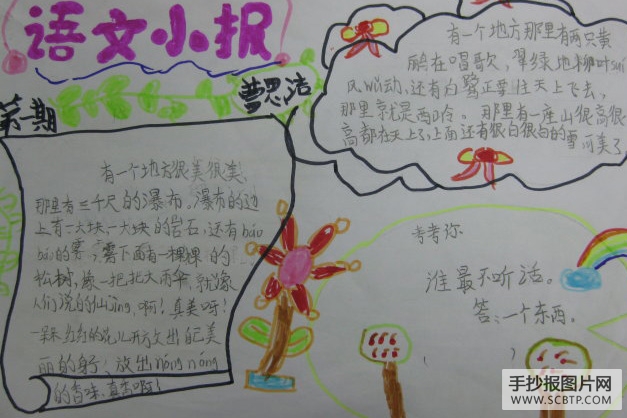 语文小报
第一期
曹思洁
有一个地方很美很美,
那里有三千尺的瀑布。瀑布的边
上有一大块一大块的岩石,还有báo
báo的雾,雾下面有一棵棵的
松树,象一把把大雨伞,就像
人们说的仙jìng,啊!真美呀!
一朵朵的花儿开放出自己美
丽的身子,放出nóng nóng
的香味,真香啊!
有一个地方那里有两只黄
鹂在唱歌,翠绿地柳叶suí
风wǔ动,还有白鹭正要往天上飞去,
那里就是西岭。那里有一座山很高很
高都在天上了,上面还有很白很白的雪可美了
考考你
谁最不听话。
答:一个东西。
( )
手抄报图片网
WWW.SCBTP.COM